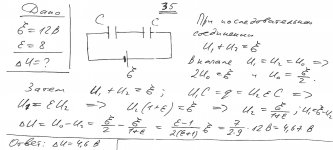 Дано
35
ℰ = 12В
ε = 8
ΔU = ?
C C
ℰ
При последовательном
соединении
U₁ + U₂ = ℰ
Вначале U₁ = U₂ = U₀ =>
2U₀ = ℰ U₀ = ℰ/2.
Затем U₁ + U₂ = ℰ; U₁C = q = U₂εC =>
U₁ = εU₂ => U₂(1+ε) = ℰ => U₂ = ℰ/(1+ε);
ΔU = U₀ - U₂ = ℰ/2 - ℰ/(1+ε) = (ε-1)/(2(ε+1)) ℰ = 7/(2·9) · 12В = 4,67В
Ответ: ΔU = 4,6 В